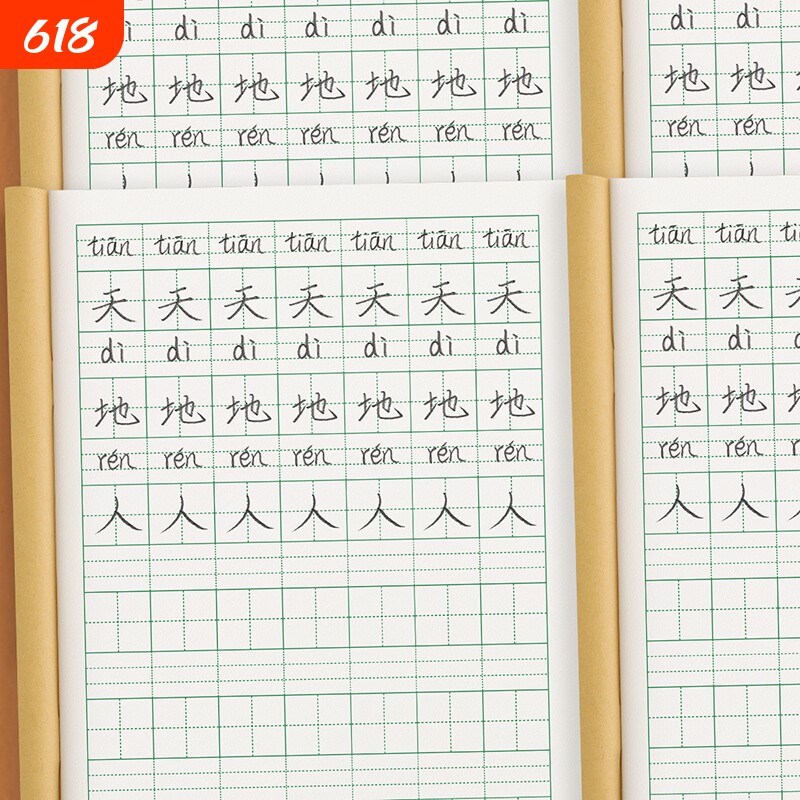 618
dì dì dì dì dì dì
地 地 地 地 地 地 地
rén rén rén rén rén rén rén
dì dì
地 地
rén rén
tiān tiān tiān tiān tiān tiān tiān
天 天 天 天 天 天 天
dì dì dì dì dì dì dì
地 地 地 地 地 地 地
rén rén rén rén rén rén rén
人 人 人 人 人 人 人
tiān tiān
天 天
dì dì
地 地
rén rén
人 人